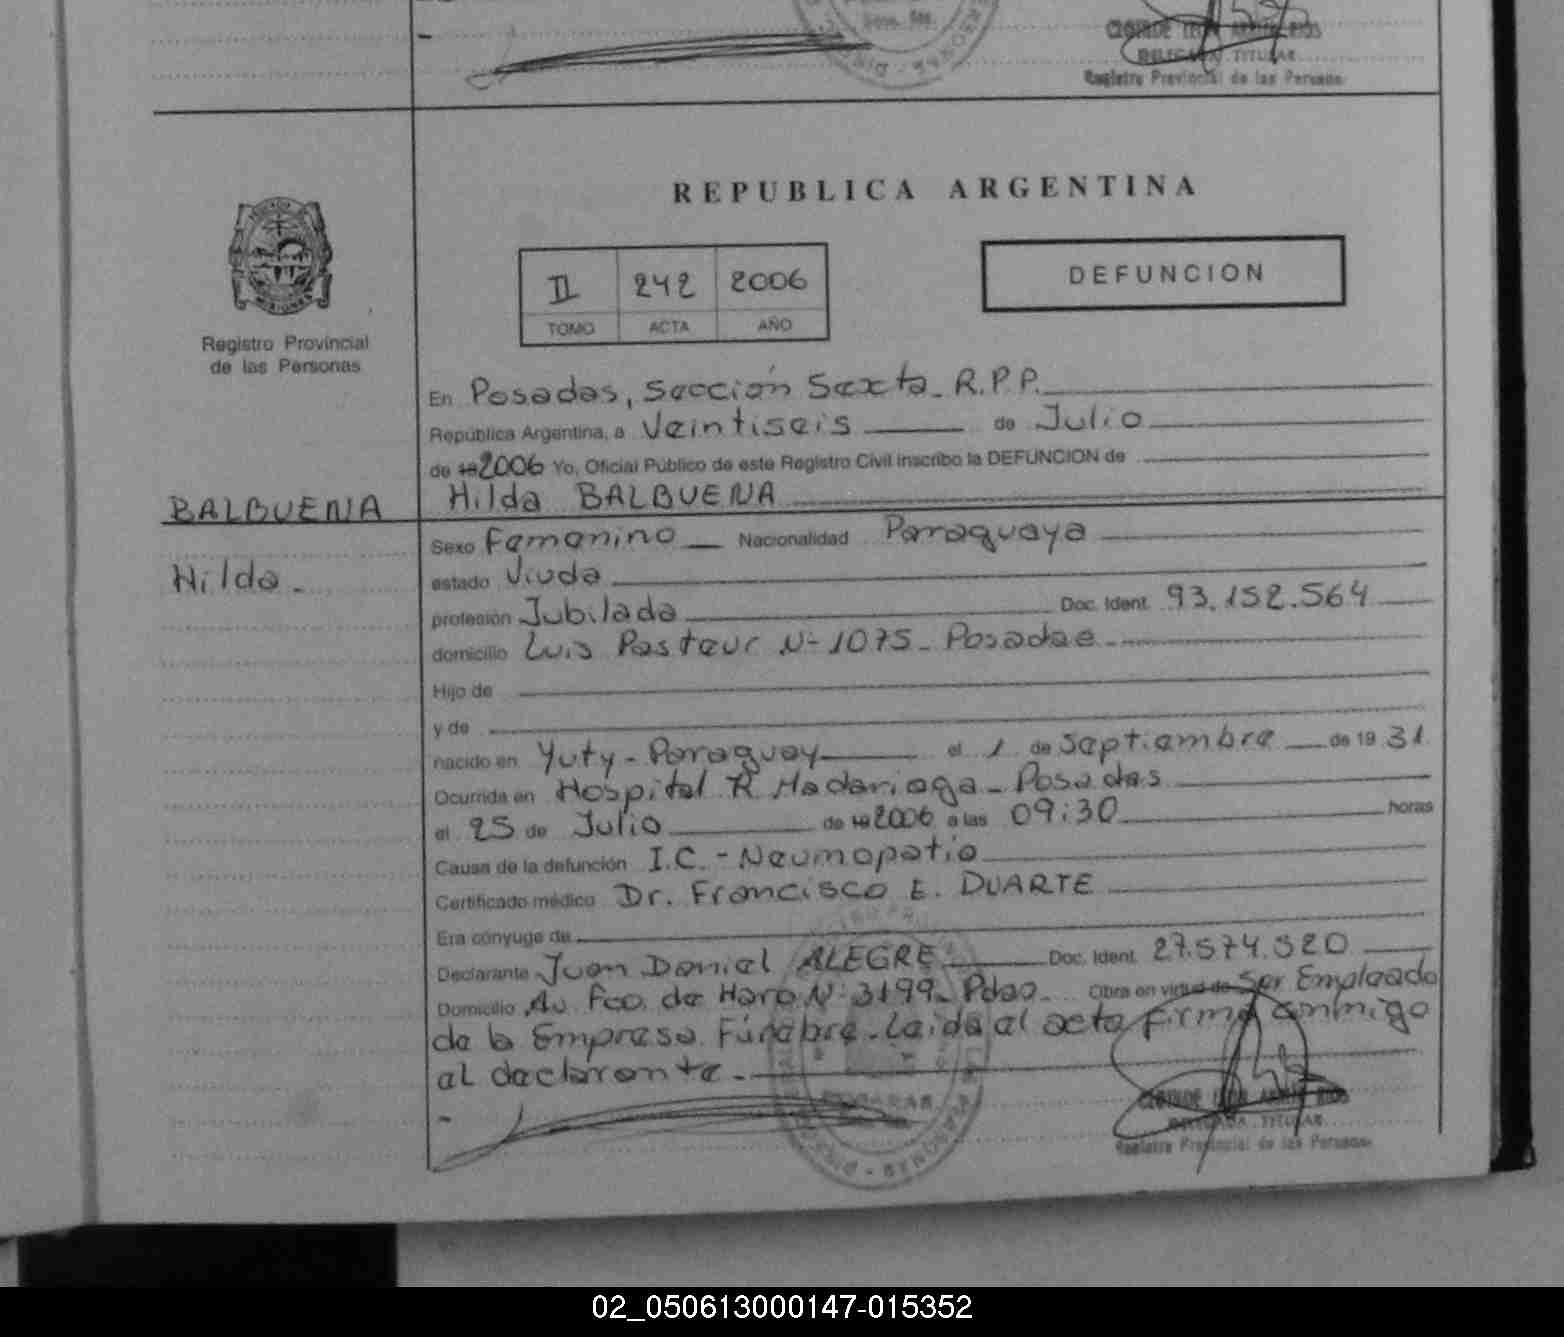 CLOTILDE LEON ARMIN RIOS
DELEGADA TITULAR
Registro Provincial de las Personas
REPUBLICA ARGENTINA
II 242 2006
TOMO ACTA AÑO
DEFUNCION
Registro Provincial
de las Personas
En Posadas, Sección Sexta. R.P.P.
República Argentina, a Veintiseis de Julio
de 19 2006 Yo, Oficial Público de este Registro Civil inscribo la DEFUNCION de
BALBUENA Hilda BALBUENA
Sexo Femenino Nacionalidad Paraguaya
Hilda.
estado Viuda
profesión Jubilada Doc. Ident. 93.152.564
domicilio Luis Pasteur Nº 1075 - Posadas
Hijo de
y de
nacido en Yuty - Paraguay el 1 de Septiembre de 19 31
Ocurrida en Hospital R. Madariaga - Posadas
el 25 de Julio de 19 2006 a las 09:30 horas
Causa de la defunción I.C. - Neumopatia
Certificado médico Dr. Francisco E. DUARTE
Era cónyuge de
Declarante Juan Daniel ALEGRE Doc. Ident. 27.574.520
Domicilio Av. Fco. de Haro Nº 3199 - Pdas. Obra en virtud de Ser Empleado
de la Empresa Fúnebre. Leida el acta firma conmigo
el declarante.
DELEGADA TITULAR
Registro Provincial de las Personas
02_050613000147-015352